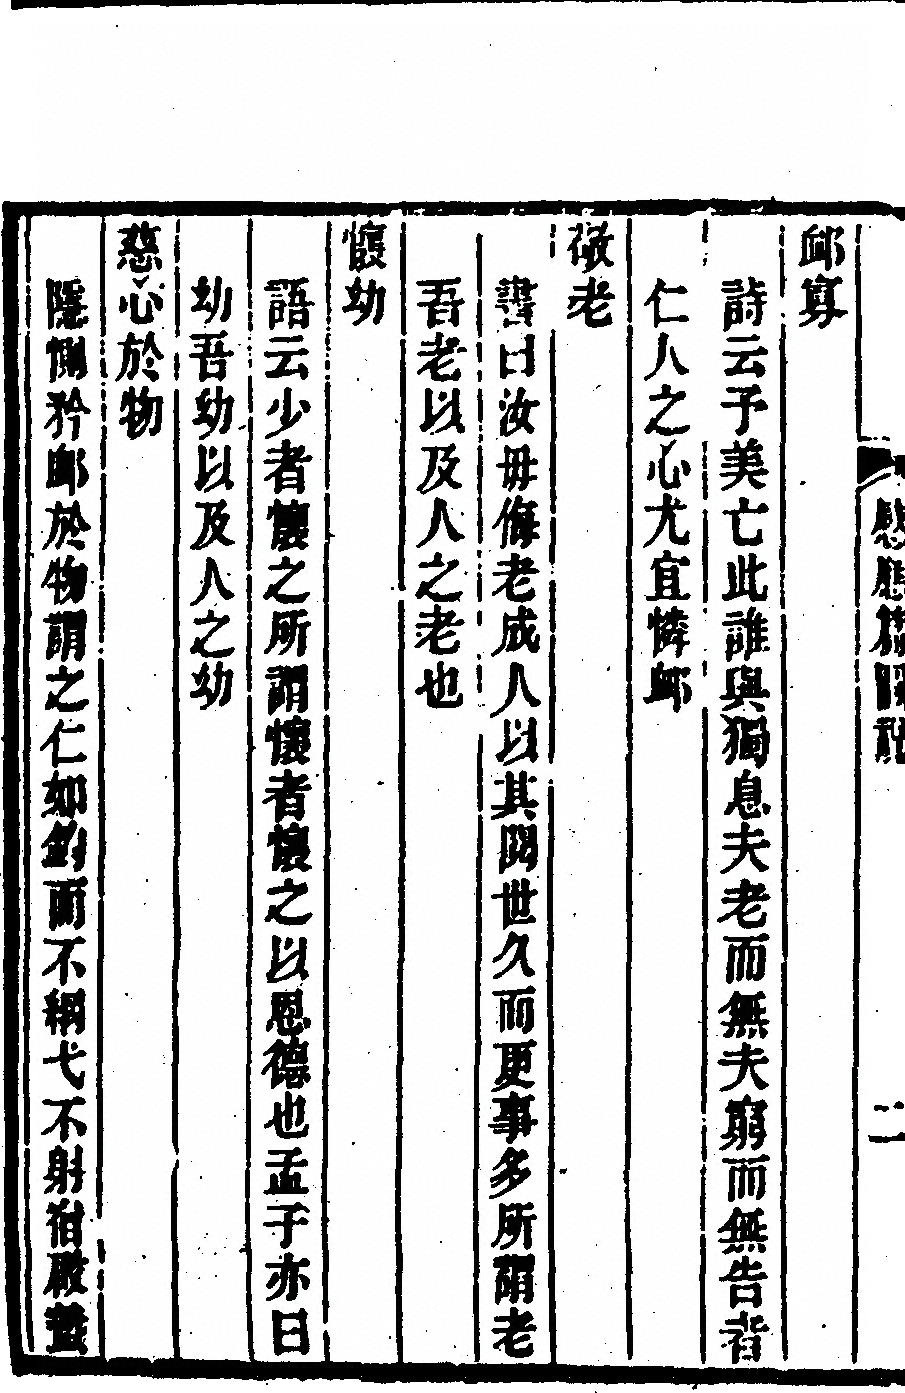 感應篇圖說
二
卹寡
詩云予美亡此誰與獨息夫老而無夫窮而無告者
仁人之心尤宜憐卹
敬老
書曰汝毋侮老成人以其閱世久而更事多所謂老
吾老以及人之老也
懷幼
語云少者懷之所謂懷者懷之以恩德也孟子亦曰
幼吾幼以及人之幼
慈心於物
隱惻矜卹於物謂之仁如釣而不綱弋不射宿啟蟄